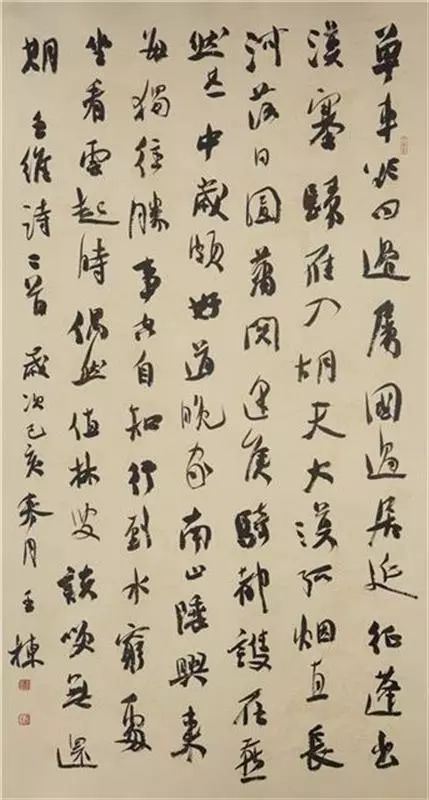 單車欲問邊屬國過居延征蓬出
漢塞歸雁入胡天大漠孤烟直長
河落日圓蕭関逢侯騎都護在燕
然中歲頗好道晚家南山陲興來
每獨往勝事空自知行到水窮處
坐看雲起時偶然值林叟談笑無還
期 王維詩二首 歲次己亥春月 王棟